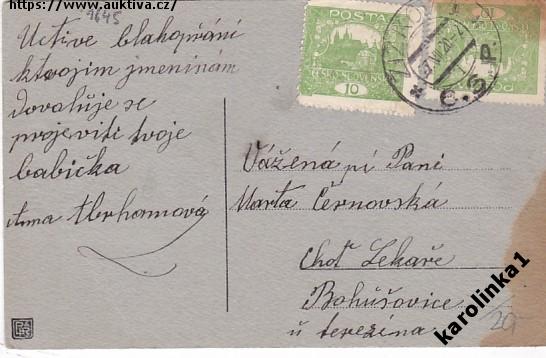 https://www.auktiva.cz/
1645
Uctivé blahopřání
k tvojim jmeninám
dovoluje se
projeviti tvoje
babička
Anna Abrhamová
POŠTA
ČESKO-SLOVENSKÁ
10
Č.S.P.
Vážená pí Paní
Marta Černovská
Choť Lékaře
Bohušovice
u terezína
20
karolinka1